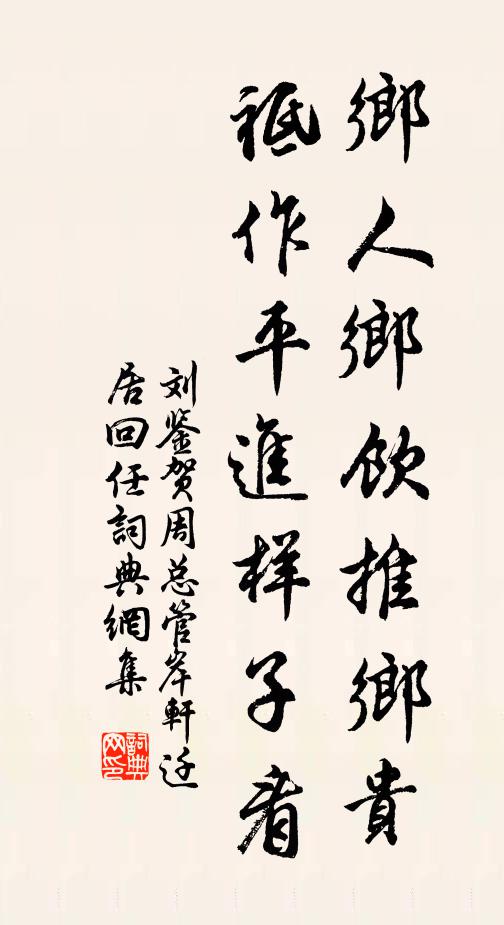 鄉人鄉飲推鄉貴
祗作平進样子看
刘鉴贺周总管岸軒迁
居回任詞典網集
詞典网印